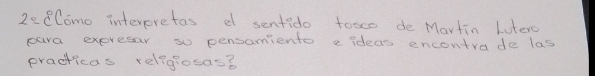 2. ¿Cómo interpretas el sentido tosco de Martin Lutero
para expresar su pensamiento e ideas encontra de las
practicas religiosas?